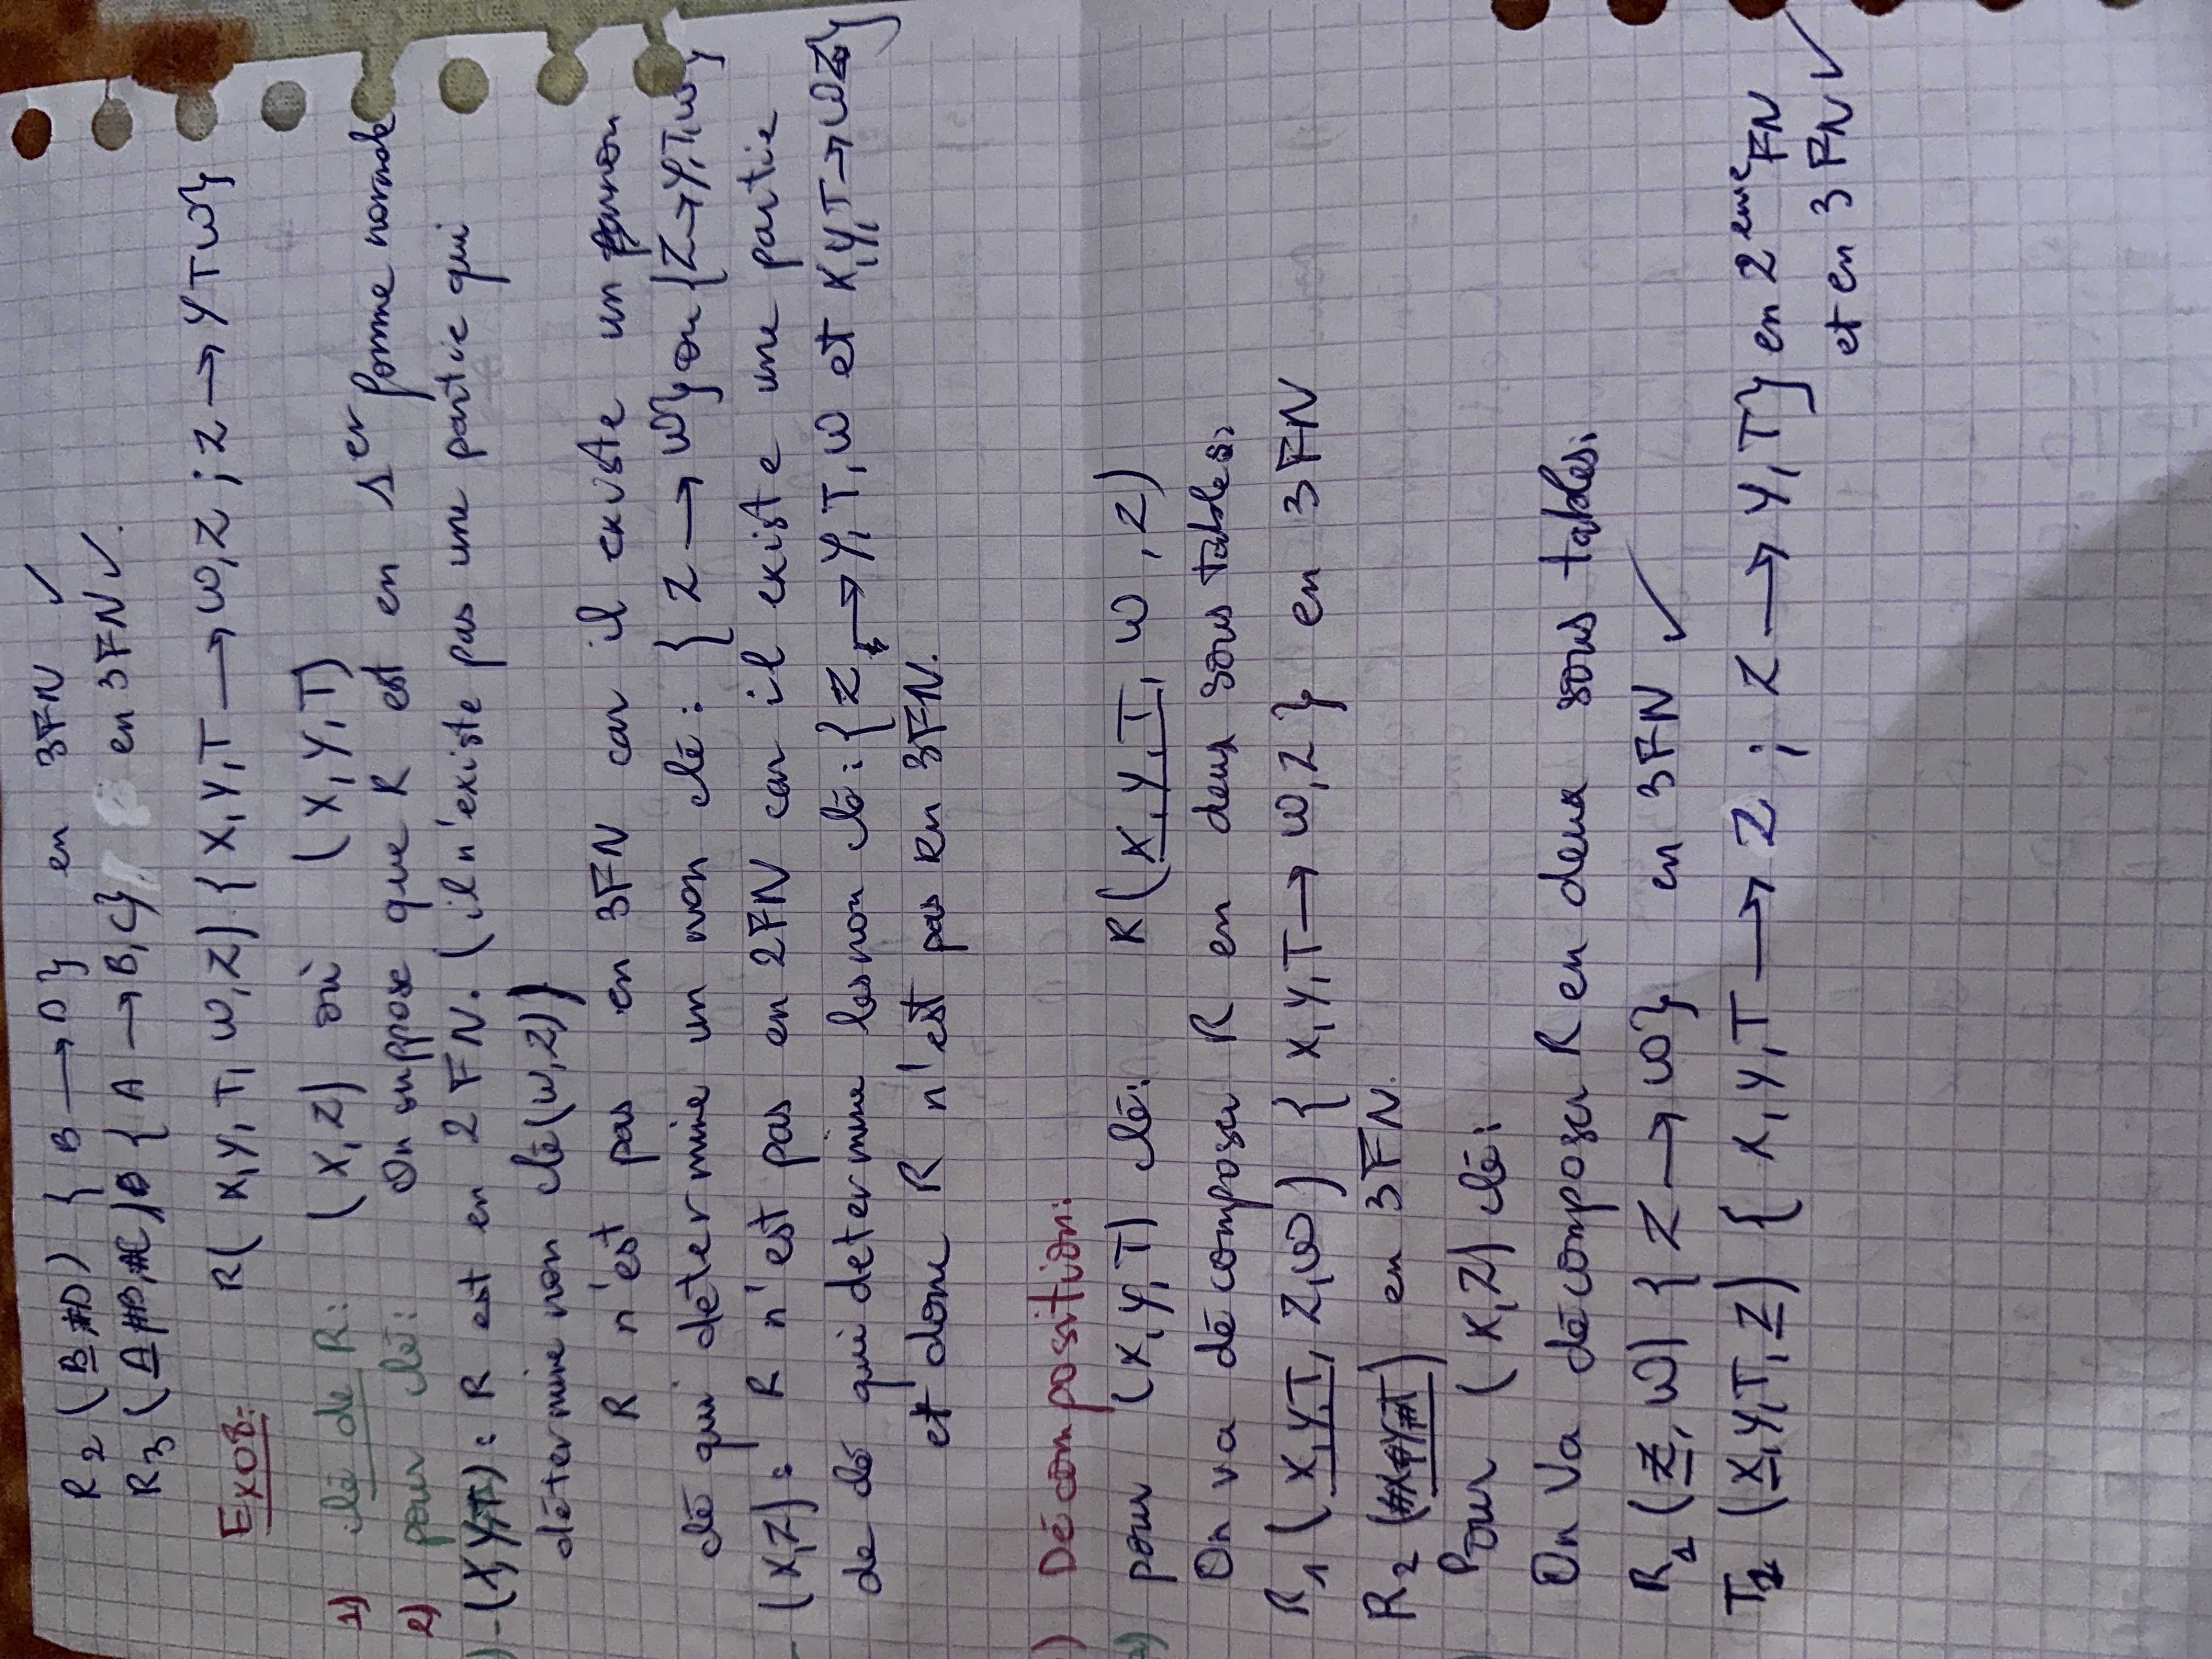 R2 (B, #D) { B → D} en 3FN ✓
R3 (A, #B, #C) { A → B, C} en 3FN ✓.
Exo8: R( X, Y, T, W, Z) { X, Y, T → W, Z ; Z → Y T W}
1) clé de R: (X, Z) où (X, Y, T)
2) pour clé: On suppose que R est en 1er forme normale
- (X, Y, T) : R est en 2 FN. (il n'existe pas une partie qui
détermine non clé (W, Z))
R n'est pas en 3FN car il existe un non
clé qui determine un non clé : { Z → W} ou {Z → Y, T, W}
- (X, Z) : R n'est pas en 2FN car il existe une partie
de clé qui determine les non clé : { Z → Y, T, W et X, Y, T → W Z}
et donc R n'est pas en 3FN.
) Décomposition:
pour (X, Y, T) clé: R( X, Y, T, W, Z)
On va décomposer R en deux sous tables:
R1 ( X, Y, T, Z, W) { X, Y, T → W, Z } en 3FN
R2 (#X, #Y, #T) en 3FN.
Pour (X, Z) clé:
On va décomposer R en deux sous tables:
R1 (Z, W) { Z → W} en 3FN ✓
T2 (X, Y, T, Z) { X, Y, T → Z ; Z → Y, T} en 2eme FN
et en 3 FN ✓